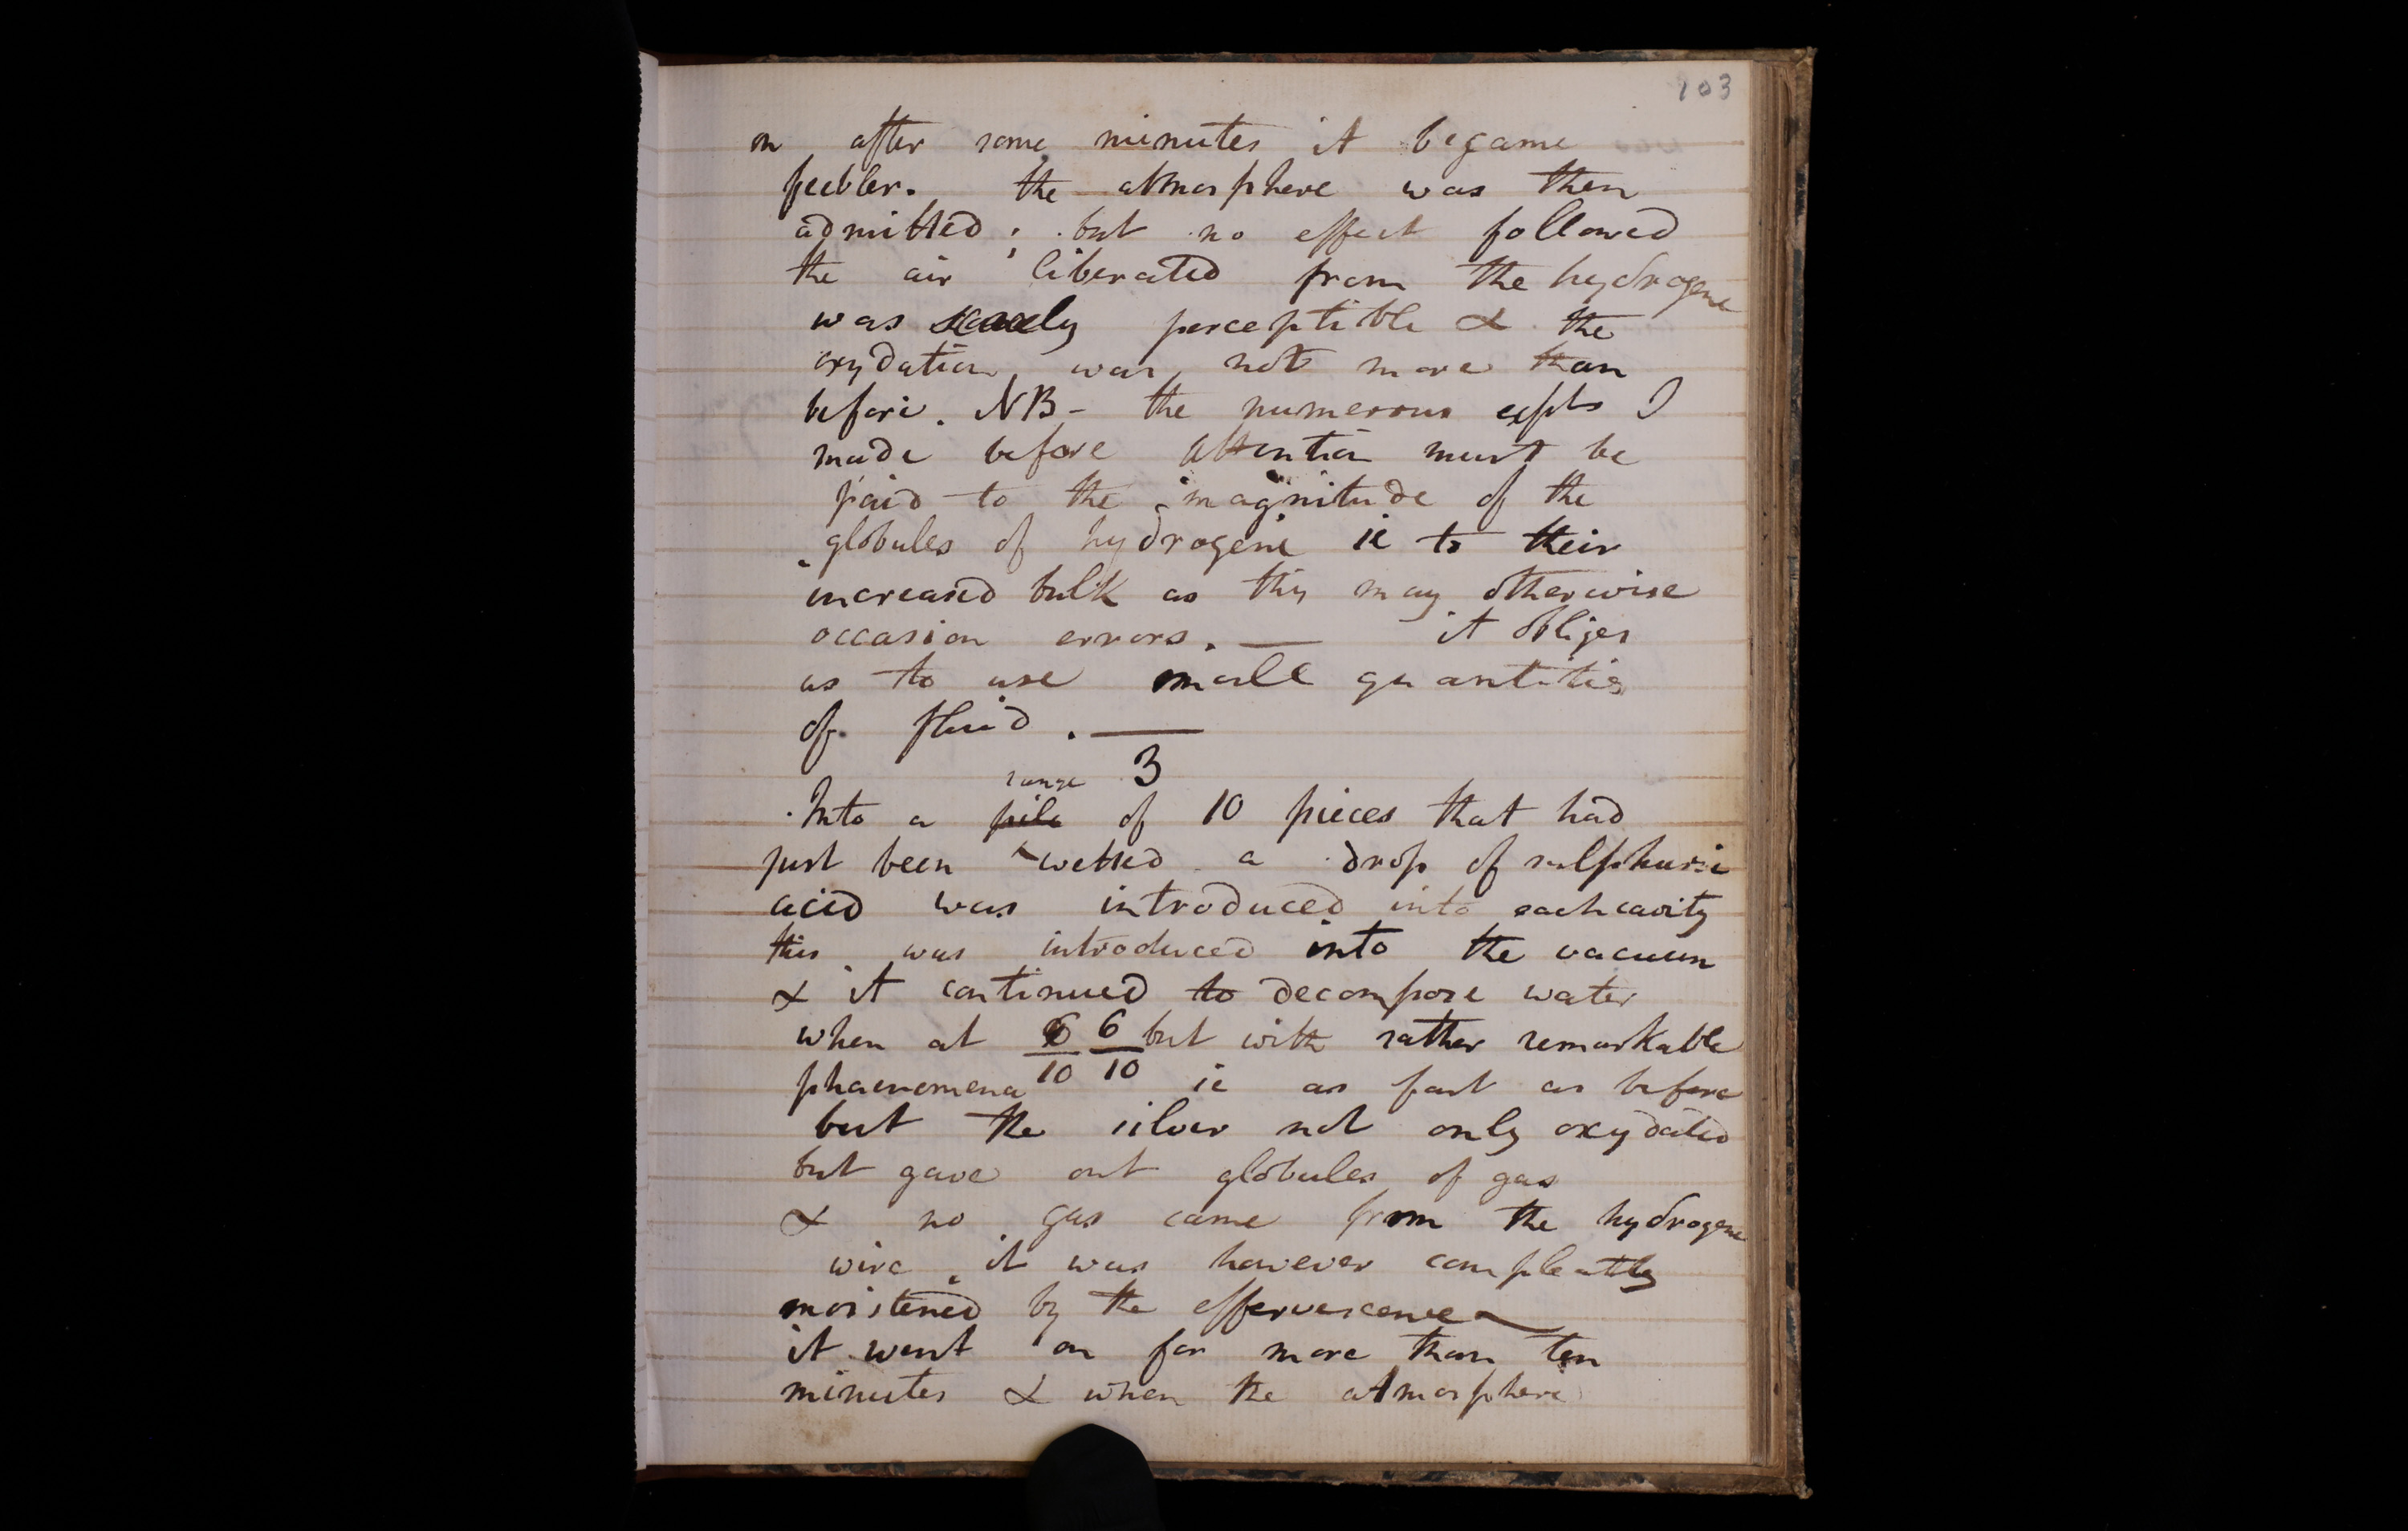 103
on after some minutes it begame
feebler. the atmosphere was then
admitted; but no effect followed
the air liberated from the hydrogene
was scarcely perceptible & the
oxydation was not more than
before. NB - the numerous expts I
made before attention must be
paid to the magnitude of the
globules of hydrogene ie to their
increased bulk as this may otherwise
occasion errors. — it obliges
us to use small quantities
of fluid. —
3
range
Into a pile of 10 pieces that had
just been wetted a drop of sulphuric
acid was introduced into each cavity
this was introduced into the vacuum
& it continued to decompose water
when at 6/10 6/10 but with rather remarkable
phaenomena ie as fast as before
but the silver not only oxydated
but gave out globules of gas
& no gas came from the hydrogene
wire, it was however compleatly
moistened by the effervescence —
it went on for more than ten
minutes & when the atmosphere